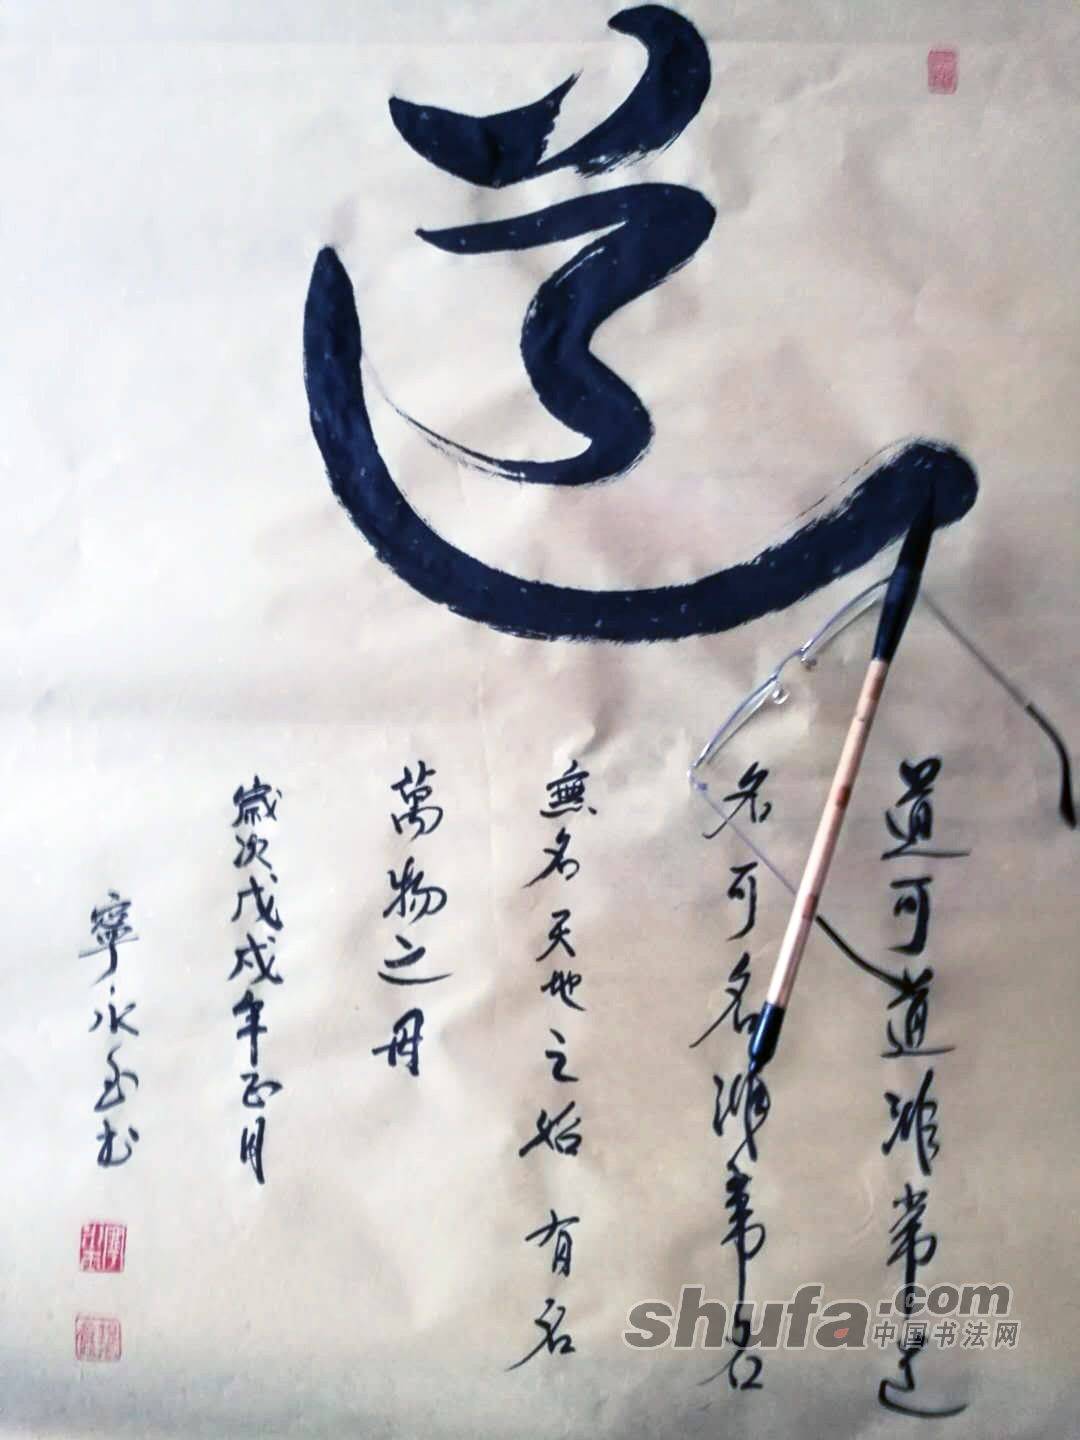 道
道可道非常道
名可名非常名
無名天地之始有名
萬物之母
歲次戊戌年正月
寧永
shufa.com
中国书法网